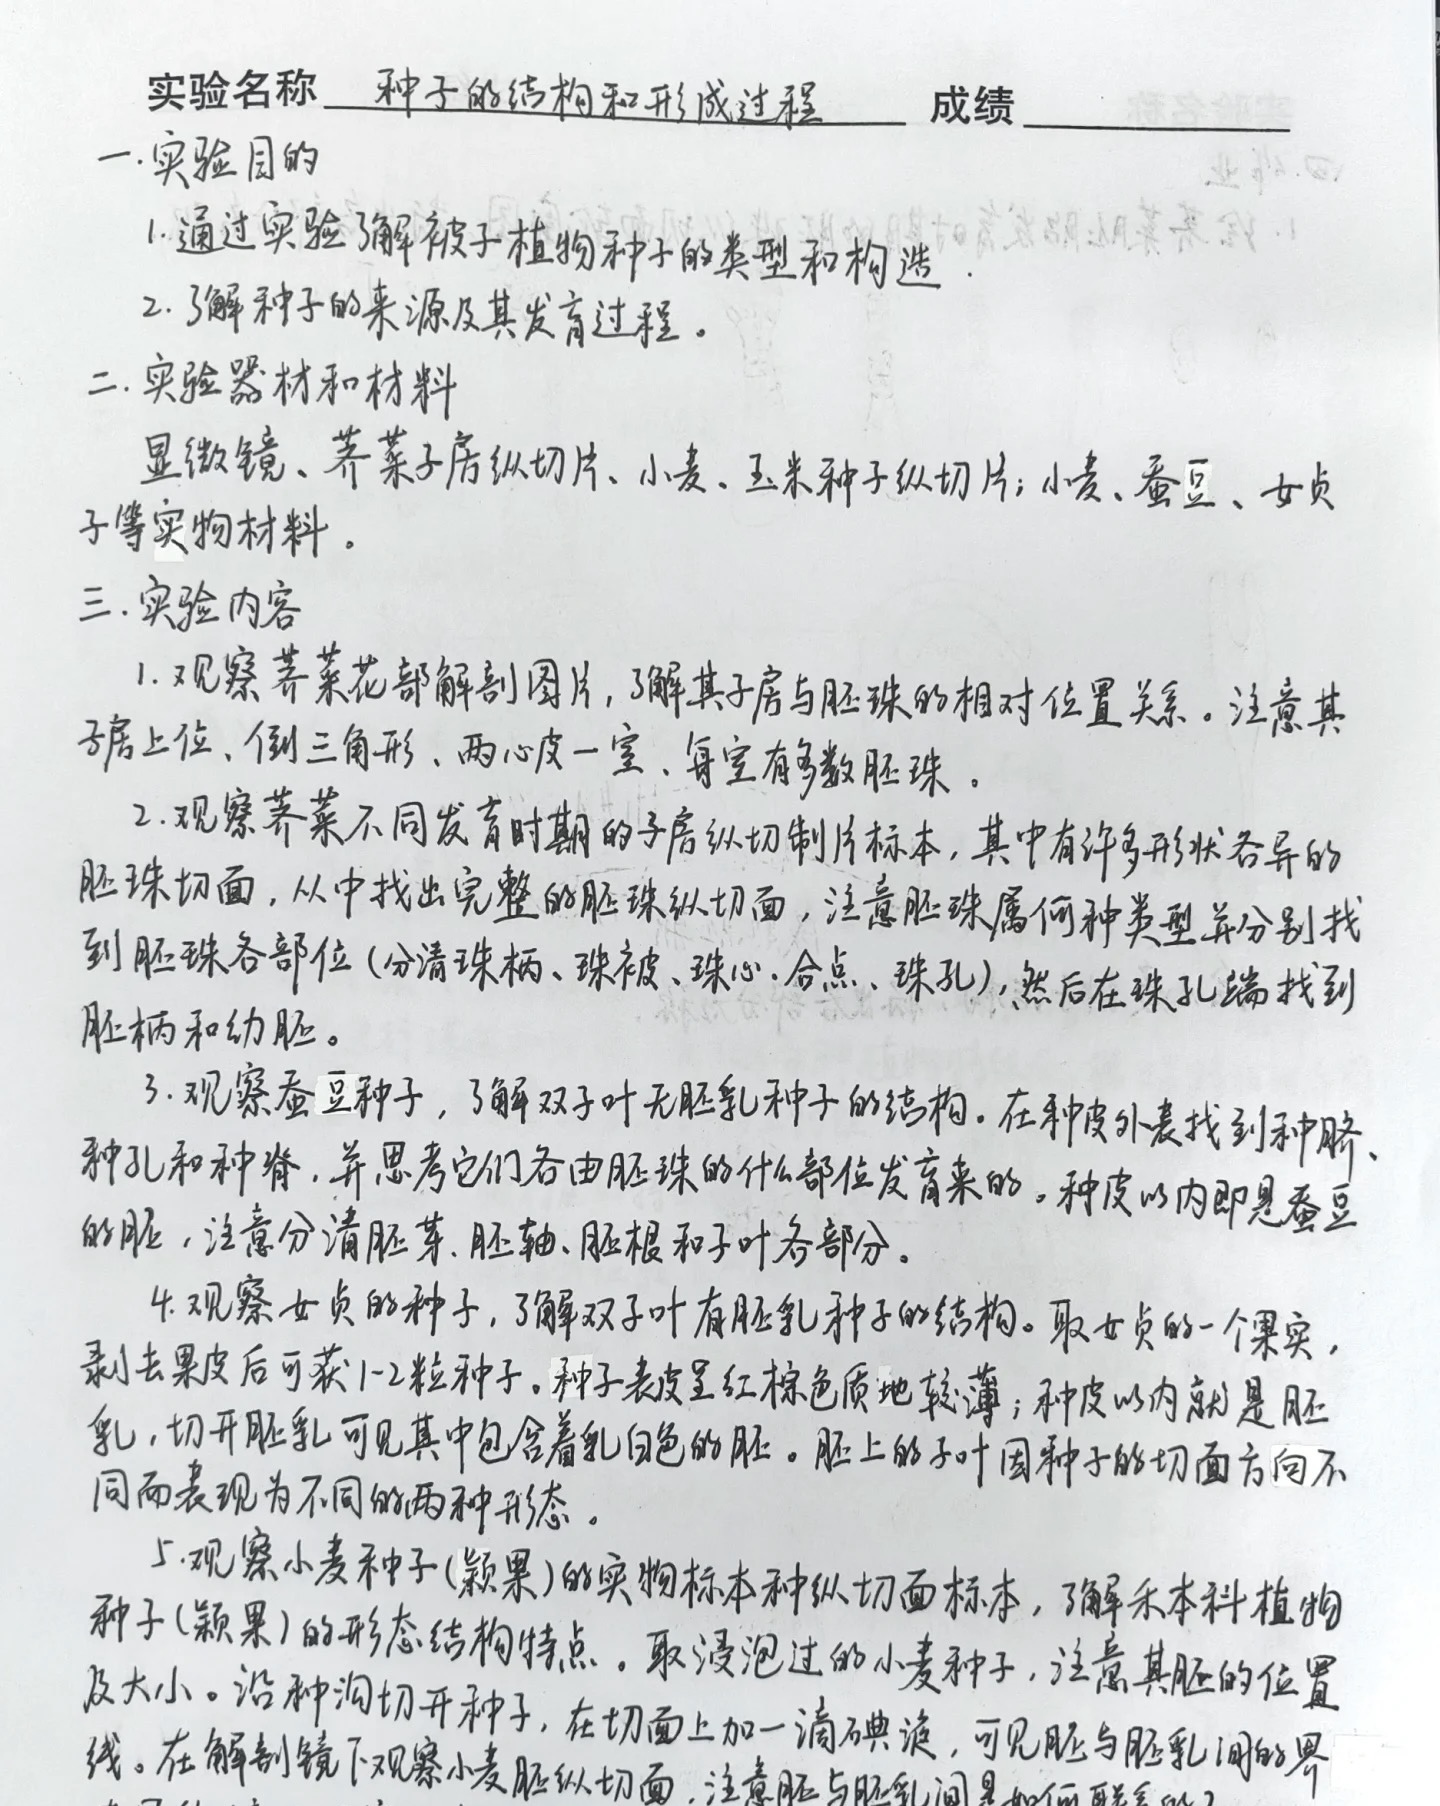 实验名称 种子的结构和形成过程 成绩
一.实验目的
1.通过实验了解被子植物种子的类型和构造.
2.了解种子的来源及其发育过程。
二.实验器材和材料
显微镜、荠菜子房纵切片、小麦、玉米种子纵切片;小麦、蚕豆、女贞
子等实物材料。
三.实验内容
1.观察荠菜花部解剖图片,了解其子房与胚珠的相对位置关系。注意其
子房上位、倒三角形、两心皮一室、每室有多数胚珠。
2.观察荠菜不同发育时期的子房纵切制片标本,其中有许多形状各异的
胚珠切面,从中找出完整的胚珠纵切面,注意胚珠属何种类型并分别找
到胚珠各部位(分清珠柄、珠被、珠心.合点、珠孔),然后在珠孔端找到
胚柄和幼胚。
3.观察蚕豆种子,了解双子叶无胚乳种子的结构。在种皮外表找到种脐、
种孔和种脊,并思考它们各由胚珠的什么部位发育来的。种皮以内即是蚕豆
的胚,注意分清胚芽、胚轴、胚根和子叶各部分。
4.观察女贞的种子,了解双子叶有胚乳种子的结构。取女贞的一个果实,
剥去果皮后可获1-2粒种子。种子表皮呈红棕色质地较薄;种皮以内就是胚
乳,切开胚乳可见其中包含着乳白色的胚。胚上的子叶因种子的切面方向不
同而表现为不同的两种形态。
5.观察小麦种子(颖果)的实物标本种纵切面标本,了解禾本科植物
种子(颖果)的形态结构特点。取浸泡过的小麦种子,注意其胚的位置
及大小。沿种沟切开种子,在切面上加一滴碘液,可见胚与胚乳间的界
线。在解剖镜下观察小麦胚纵切面,注意胚与胚乳间是如何联系的?